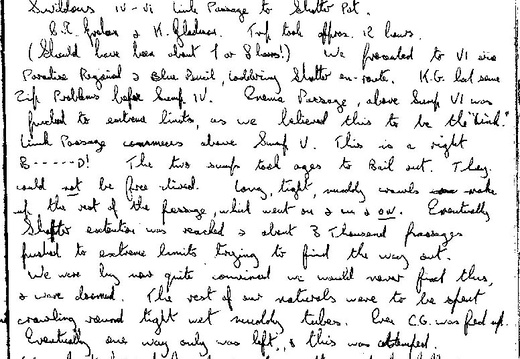 Swildons IV-VI Link Passage to Shatter Pot.
B.E. & K. Gladman. Trip took approx. 12 hours.
(Should have been about 7 or 8 hours!) We proceeded to VI via
Paradise Regained & Blue Pencil, laddering Shatter en-route. K.G. had some
Zip Problems before Sump IV. Passage, above Sump VI was
pushed to extreme limits, as we believed this to be the "Link."
Link Passage commences above Sump V. This is a right
B-----D! The two sumps took ages to Bail out. They
could not be free dived. Long, tight, muddy crawls make
up the rest of the passage, which went on & on & on. Eventually
Shatter extension was reached & about 3 Thousand passages
pushed to extreme limits trying to find the way out.
We were by now quite convinced we would never find this,
& were doomed. The rest of our naturals were to be spent
crawling round tight wet muddy tubes. Even C.G. was fed up.
Eventually one way only was left, & this was attempted.